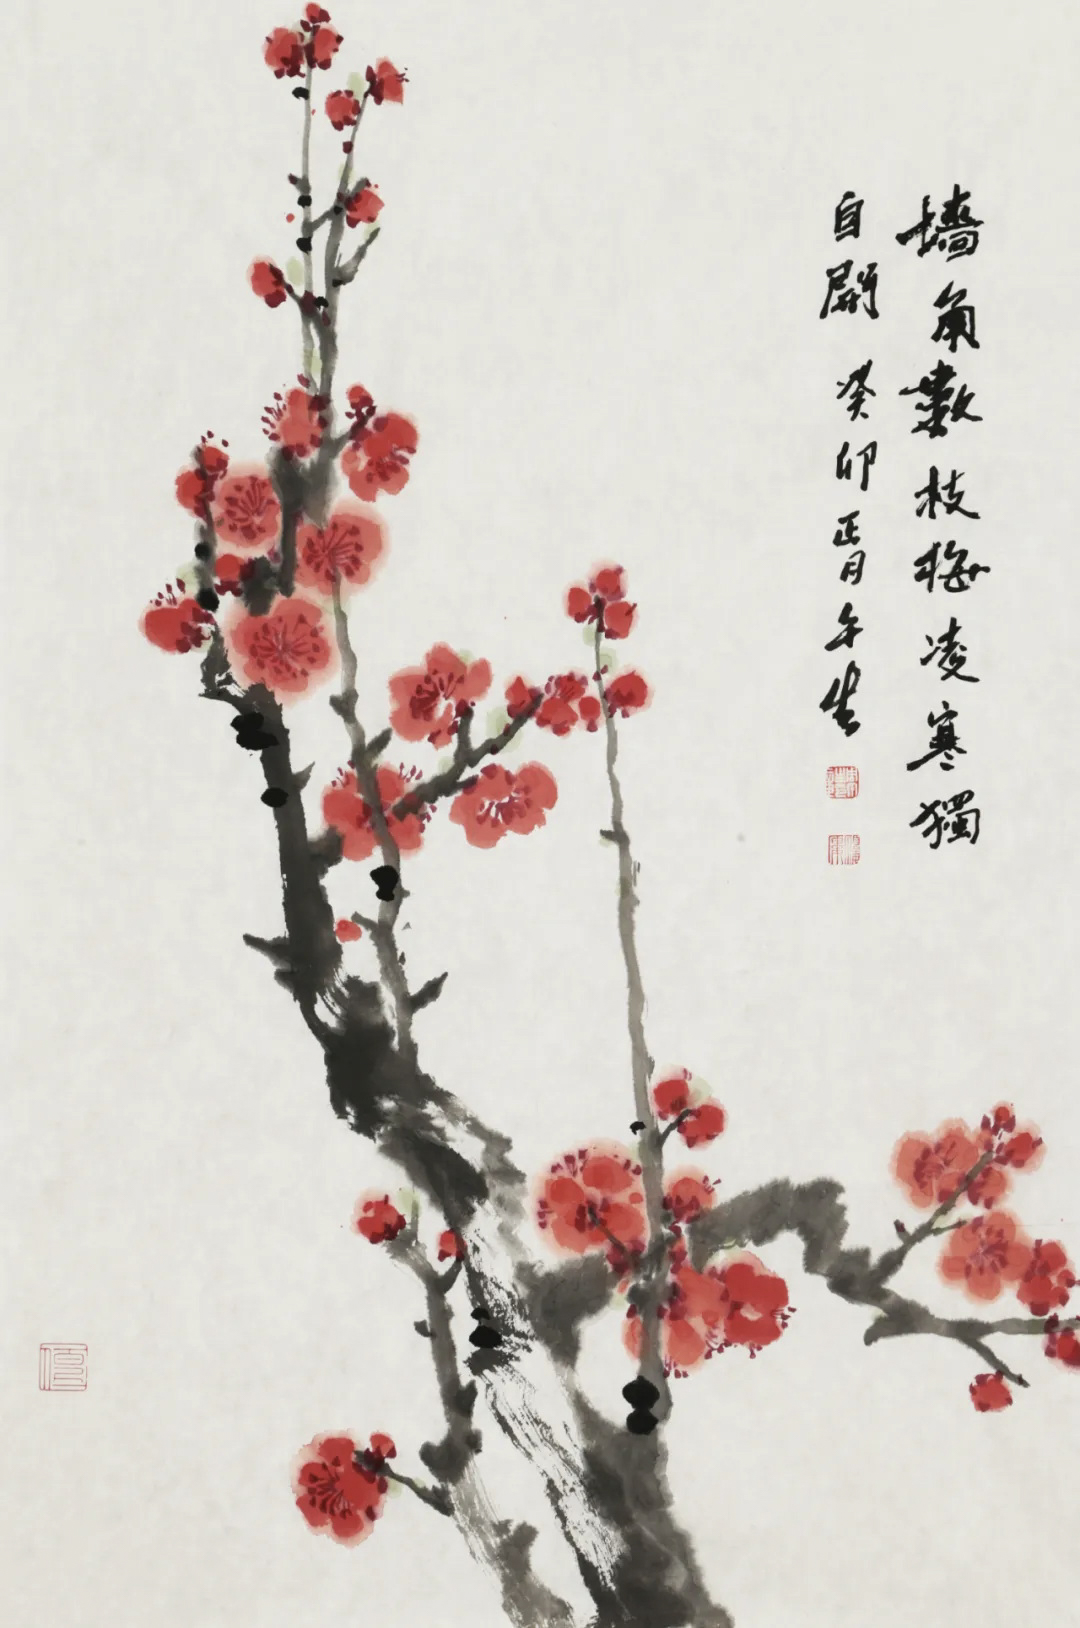 墻角數枝梅凌寒獨
自開 癸卯正月午生